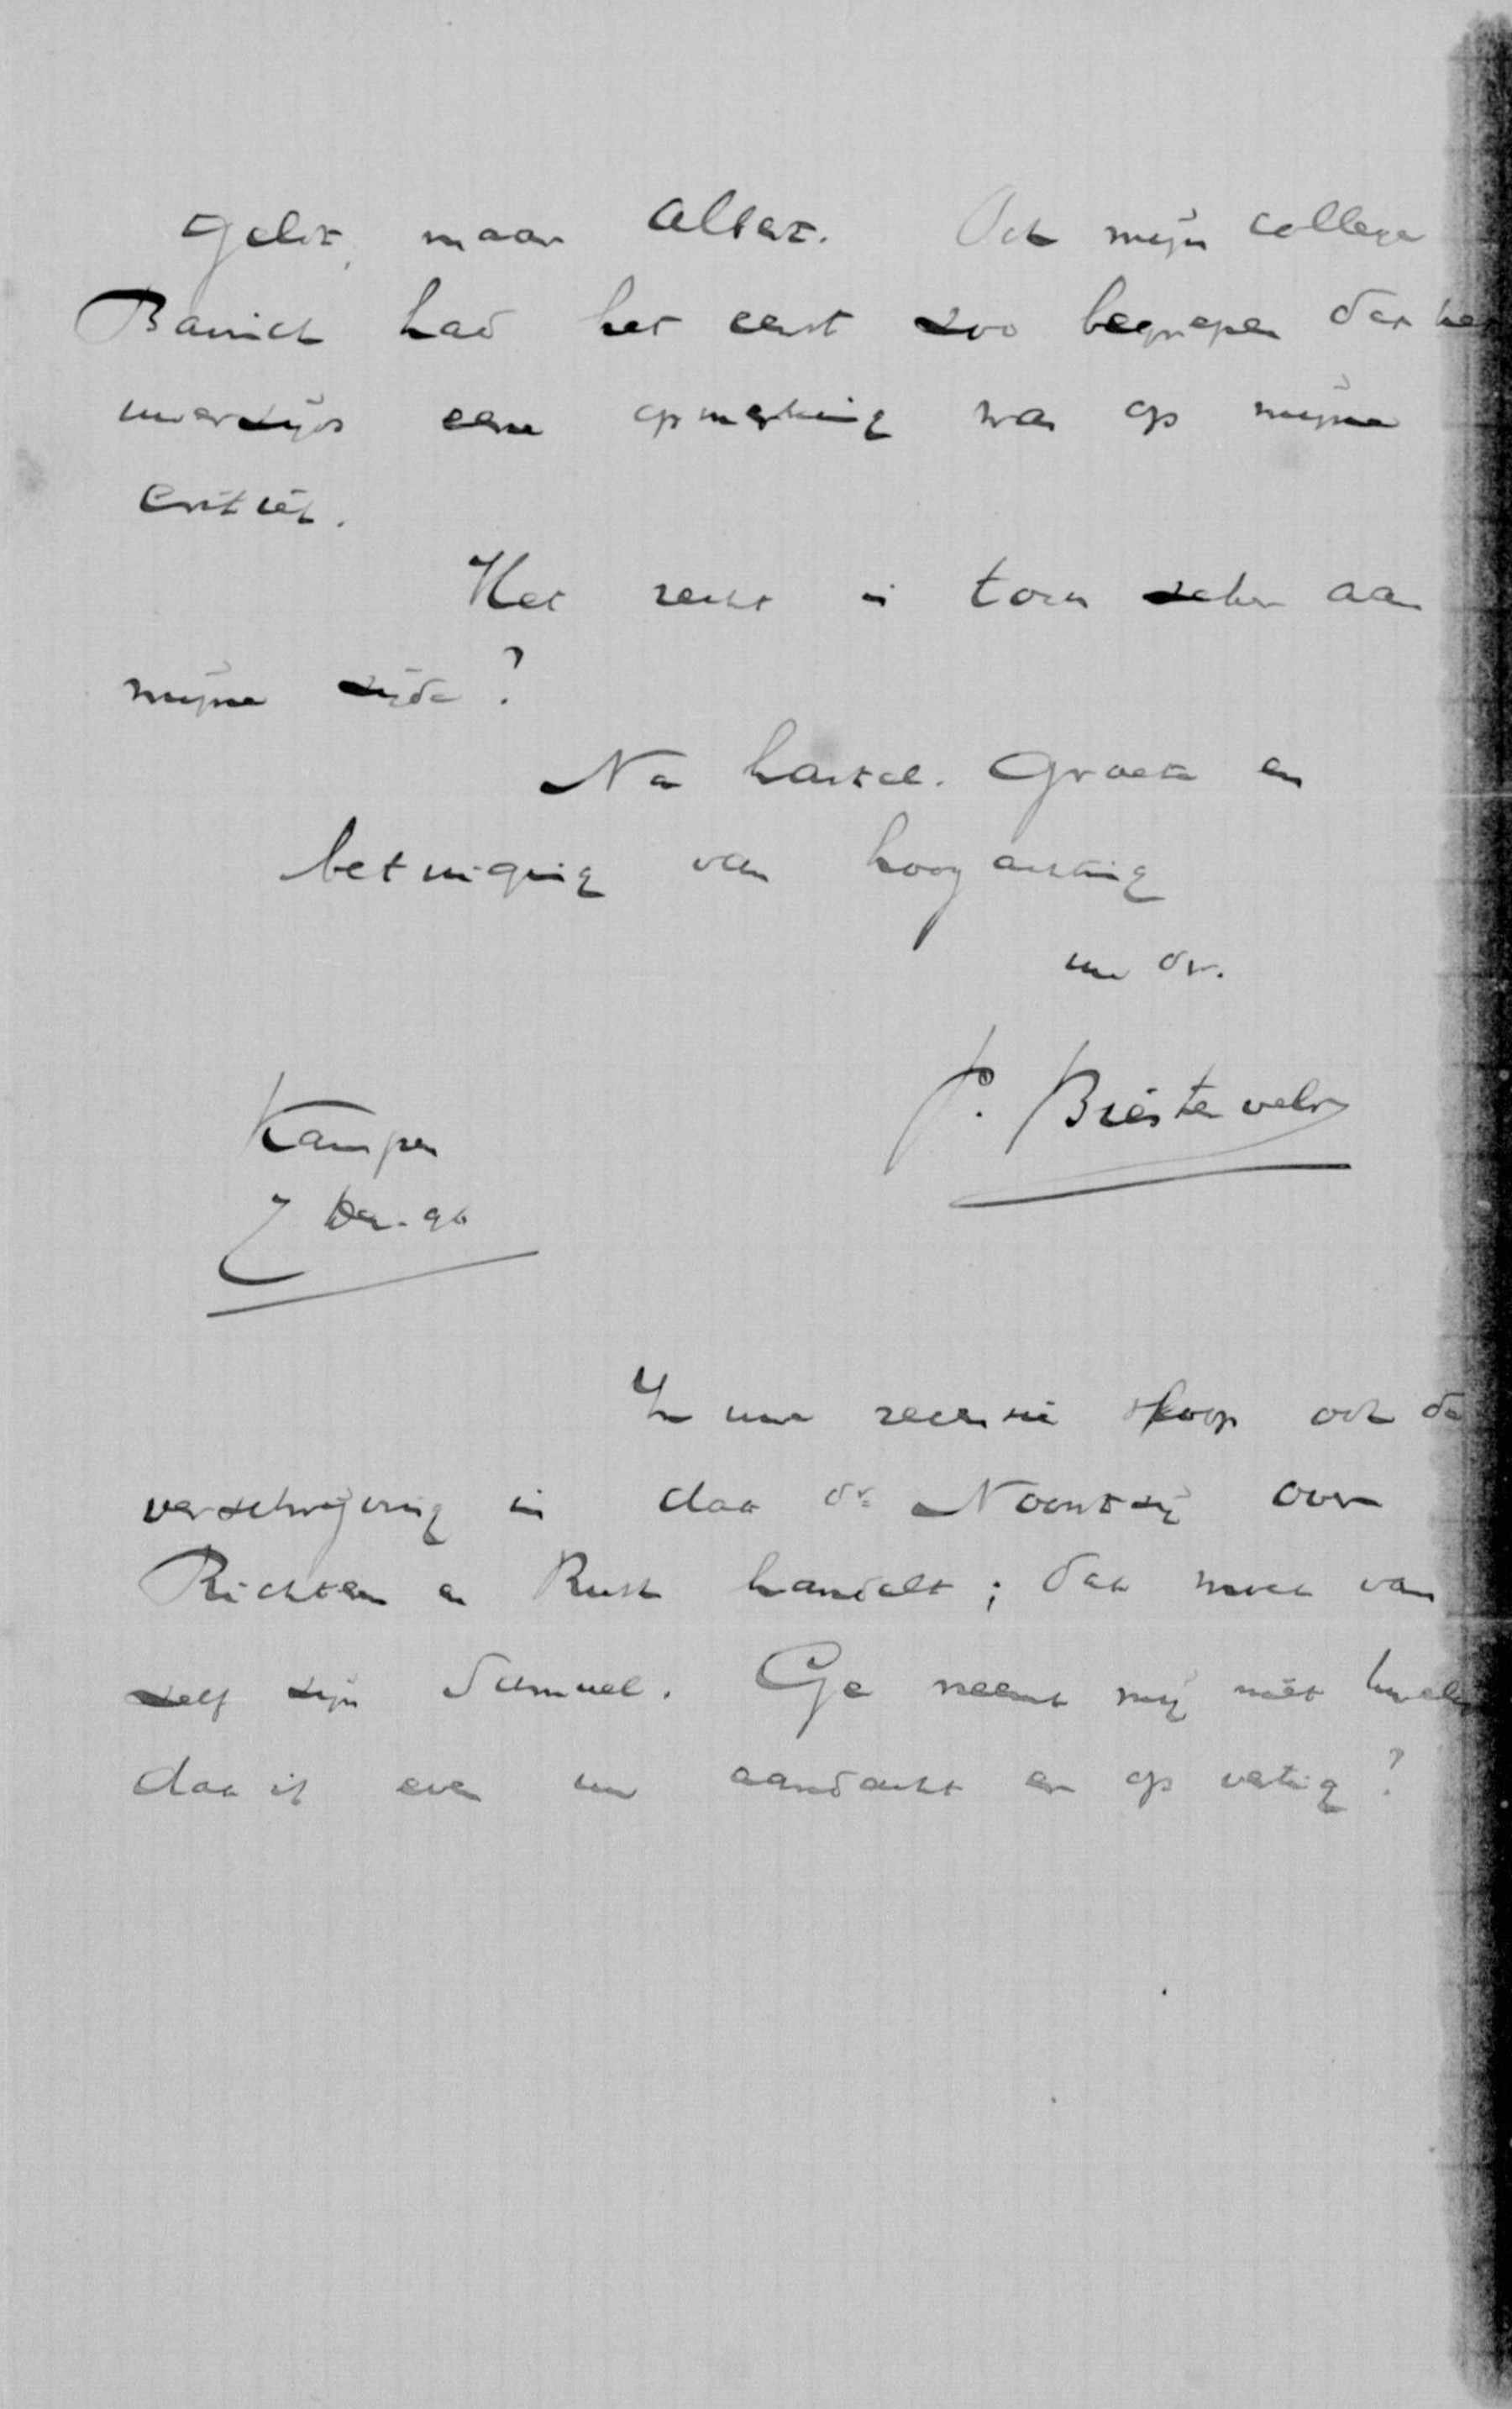 geldt, maar Albert. Ook mijn collega
Bavinck had het eerst zoo begrepen dat het
uwerzijds eene opmerking was op mijne
critiek.
Het recht is toch zeker aan
mijne zijde?
Na hartel. groete en
betuiging van hoogachting
uw dr.
P. Biesterveld
Kampen
7 Dec. 96
In uw recensie sloop ook de
verschrijving in dat dr. Noordtzij over
Richteren en Ruth handelt; dat moet van
zelf zijn Samuel. Ge neemt mij niet kwalijk
dat ik even uw aandacht er op vestig?